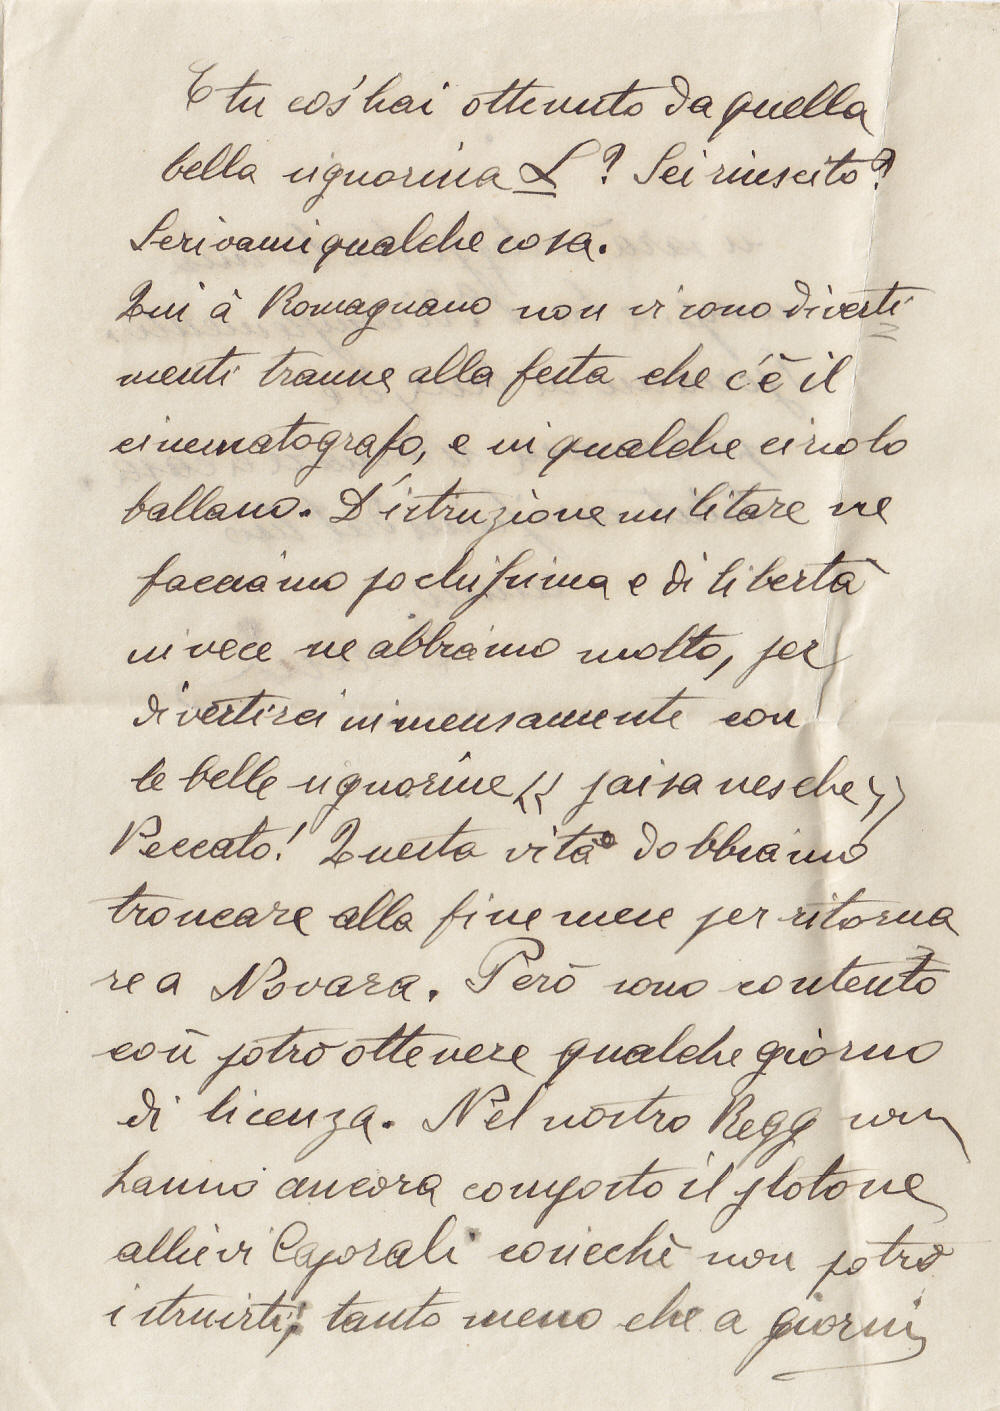 E tu cos'hai ottenuto da quella
bella signorina L? Sei riuscito?
Scrivami qualche cosa.
Qui à Romagnano non vi sono diverti
menti tranne alla festa che c'é il
cinematografo, e in qualche circolo
ballano. D'istruzione militare ne
facciamo pochissima e di libertà
invece ne abbiamo molto, per
divertirci immensamente con
le belle signorine << paisanesche >>
Peccato! Questa vita dobbiamo
troncare alla fine mese per ritorna
re a Novara. Però sono contento
così potrò ottenere qualche giorno
di licenza. Nel nostro Regg non
hanno ancora composto il plotone
allievi Caporali cosicchè non potrò
istruirti; tanto meno che a giorni